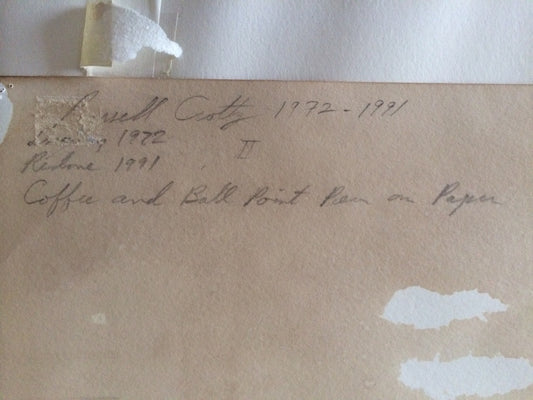 Russell Crotty 1972-1991
Drawing 1972
II
Redone 1991
Coffee and Ball Point Pen on Paper